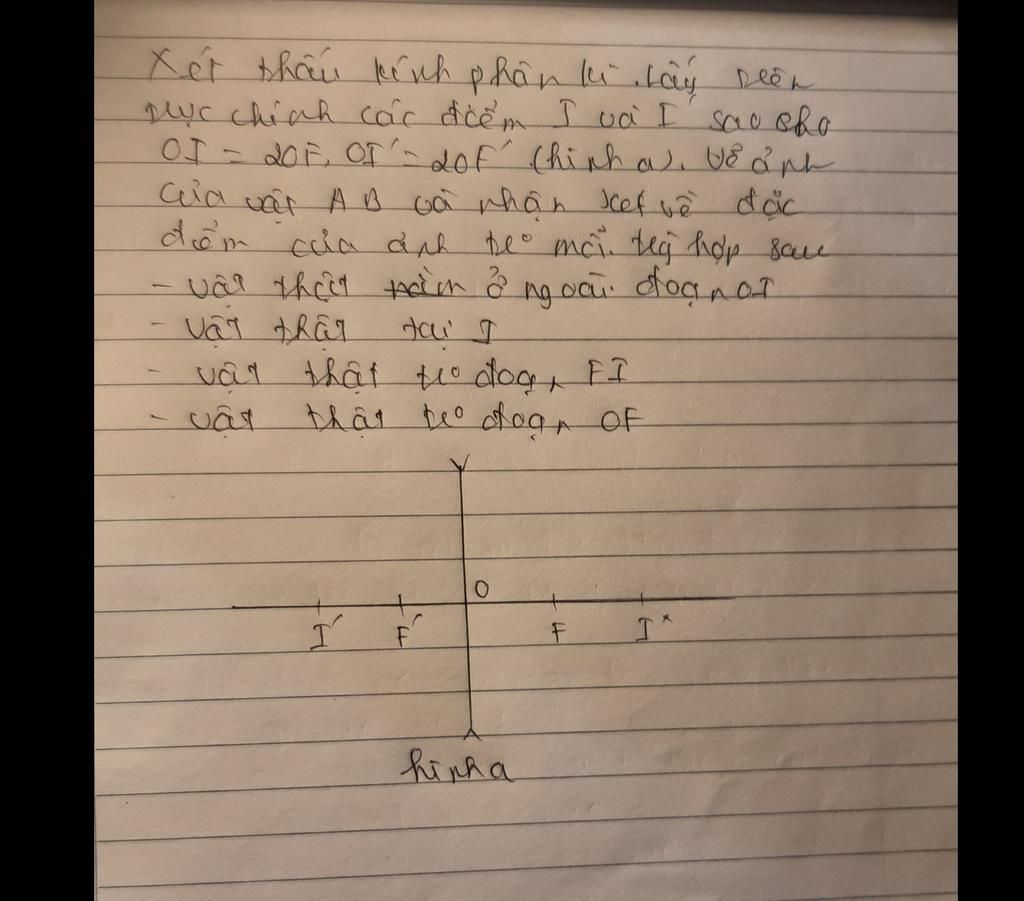 Xét thấu kính phân kì. Lấy trên
trục chính các điểm I và I' sao cho
OI = 2OF, OI' = 2OF' (hình a). Vẽ ảnh
của vật AB và nhận xét về đặc
điểm của ảnh tro mỗi. trg hợp sau
- vật thật nằm ở ngoài đoạn OI
- vật thật tại I
- vật thật tro đoạn FI
- vật thật tro đoạn OF
O
I' F' F I
hình a